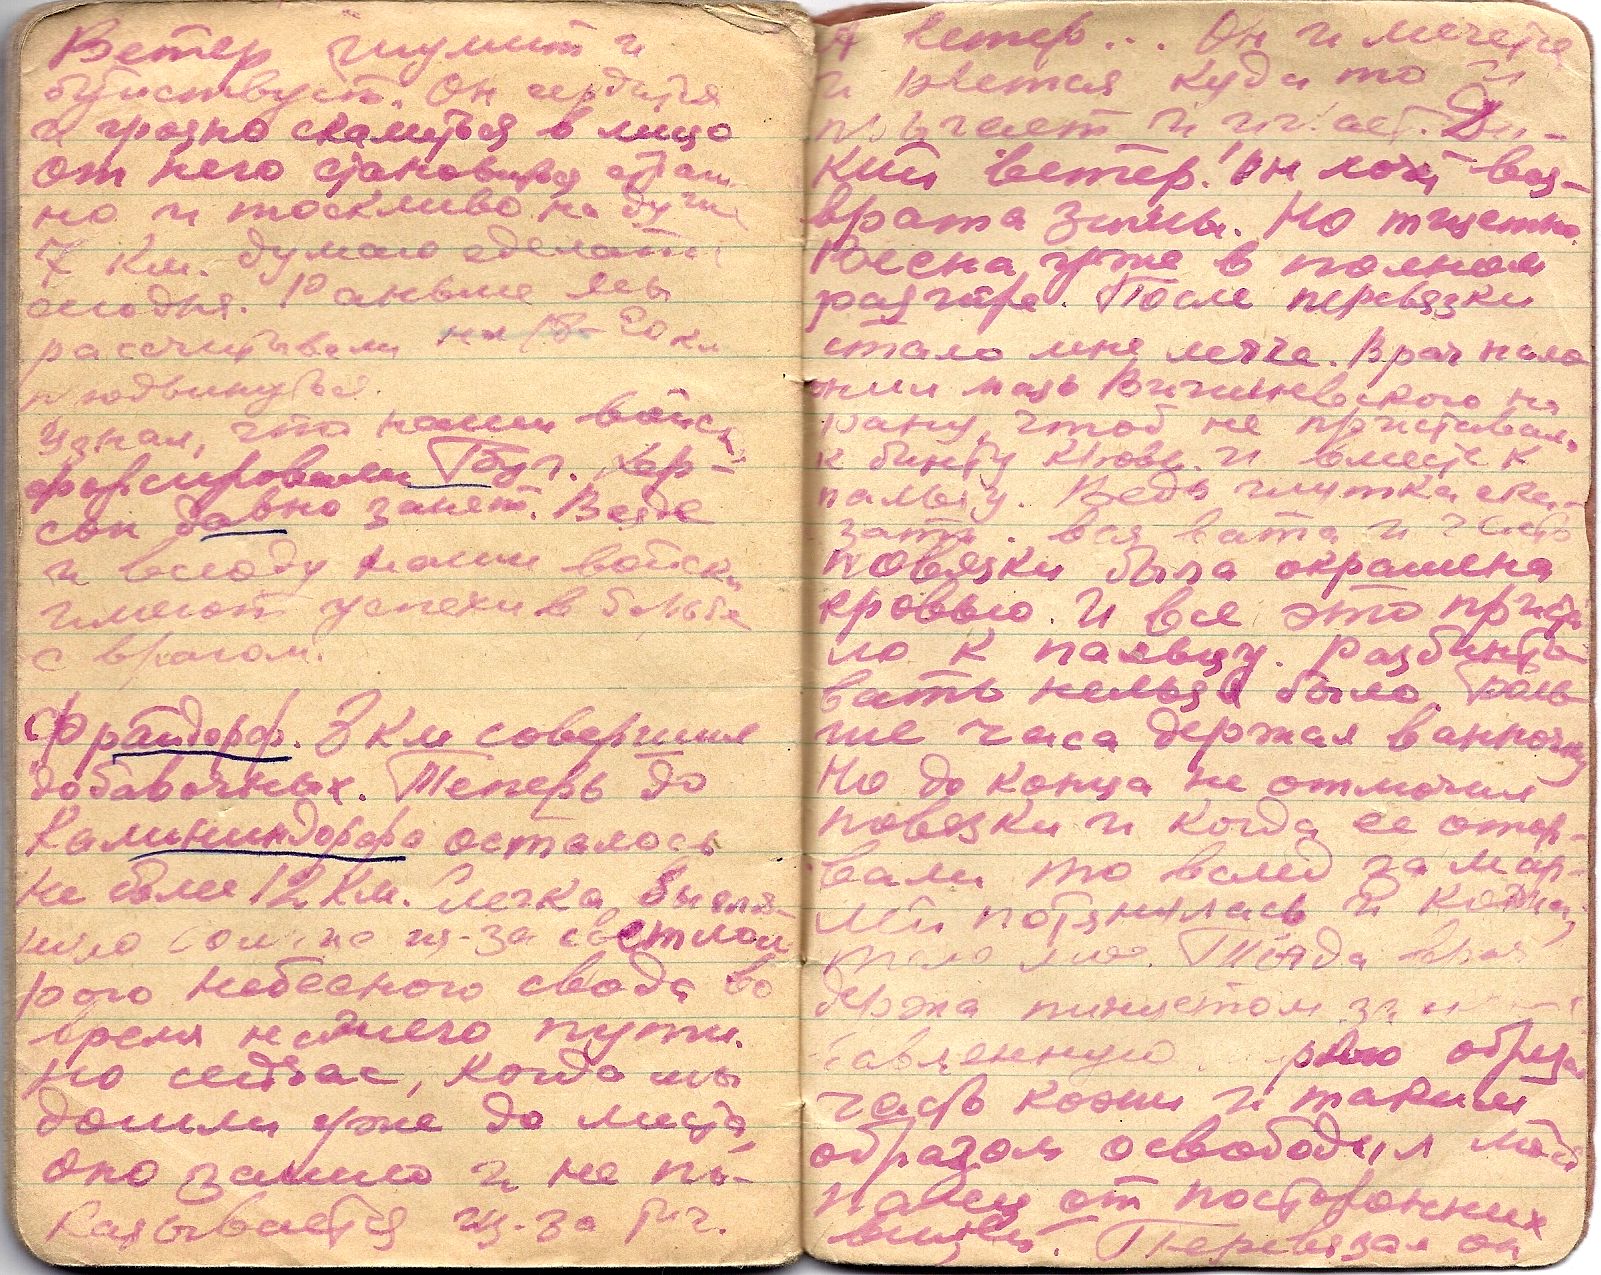 Ветер шумит и
буйствует. Он сердится
и грозно скалиться в лицо
от него становится страш
но и тоскливо на душе
7 км. думаю сделать
сегодня. Раньше мы
рассчитывали 20 км
продвинуться.
Узнал, что наши войска
форсировали Буг. Хер-
сон давно занят. Везде
и всюду наши войска
имеют успехи в борьбе
с врагом.
Фрайдорф. 3 км совершил
добавочных. Теперь до
Калининдорфа осталось
не более 12 км. Слегка выгля-
нуло солнце из-за
небесного свода во
время нашего пути.
Но сейчас, когда мы
дошли уже до места,
оно зашло и не по-
казывается из-за туч.
А ветер... Он и мечется
и рвется куда то и
рычает и Ди-
кий ветер! Он хочет воз-
врата зимы. Но тщетно.
Весна уже в полном
разгаре. После перевязки
стало мне легче. Врач нало
жил мазь Вишневского на
рану, чтоб не приставал
к бинту и вместе к
пальцу. Ведь шутка ска-
зать. вся вата и часть
повязки была окрашена
кровью. И все это приста
ло к пальцу. Разбинто-
вать нельзя было. Боль
ше часа держал в ванночке
Но до конца не отмочил
повязки и когда ее отор-
вали то вслед за мар-
лей потянулась и кожица
Тогда врач
держа пинцетом за
обреза
часть кожи и таким
образом освободил мой
палец от посторонних
вещей. Перевязал он